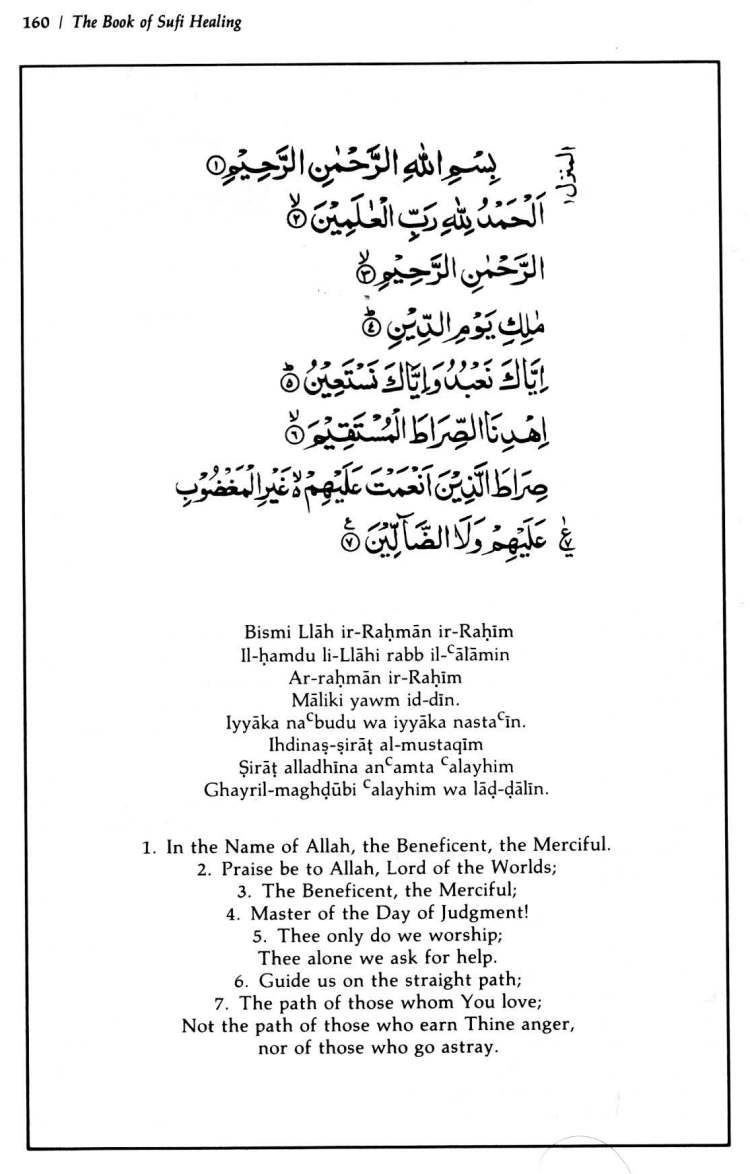 160 / The Book of Sufi Healing
المنزل ١
بِسْمِ اللهِ الرَّحْمٰنِ الرَّحِيْمِ ①
اَلْحَمْدُ لِلّٰهِ رَبِّ الْعٰلَمِيْنَ ۙ②
الرَّحْمٰنِ الرَّحِيْمِ ۙ③
مٰلِكِ يَوْمِ الدِّيْنِ ؕ④
اِيَّاكَ نَعْبُدُ وَاِيَّاكَ نَسْتَعِيْنُ ؕ⑤
اِهْدِنَا الصِّرَاطَ الْمُسْتَقِيْمَ ۙ⑥
صِرَاطَ الَّذِيْنَ اَنْعَمْتَ عَلَيْهِمْ ۙ غَيْرِ الْمَغْضُوْبِ
عَلَيْهِمْ وَلَا الضَّآلِّيْنَ ⑦
Bismi Llāh ir-Raḥmān ir-Raḥīm
Il-ḥamdu li-Llāhi rabb il-ᶜālāmin
Ar-raḥmān ir-Raḥīm
Māliki yawm id-dīn.
Iyyāka naᶜbudu wa iyyāka nastaᶜīn.
Ihdinaṣ-ṣirāṭ al-mustaqīm
Ṣirāṭ alladhīna anᶜamta ᶜalayhim
Ghayril-maghḍūbi ᶜalayhim wa lāḍ-ḍālīn.
1. In the Name of Allah, the Beneficent, the Merciful.
2. Praise be to Allah, Lord of the Worlds;
3. The Beneficent, the Merciful;
4. Master of the Day of Judgment!
5. Thee only do we worship;
Thee alone we ask for help.
6. Guide us on the straight path;
7. The path of those whom You love;
Not the path of those who earn Thine anger,
nor of those who go astray.